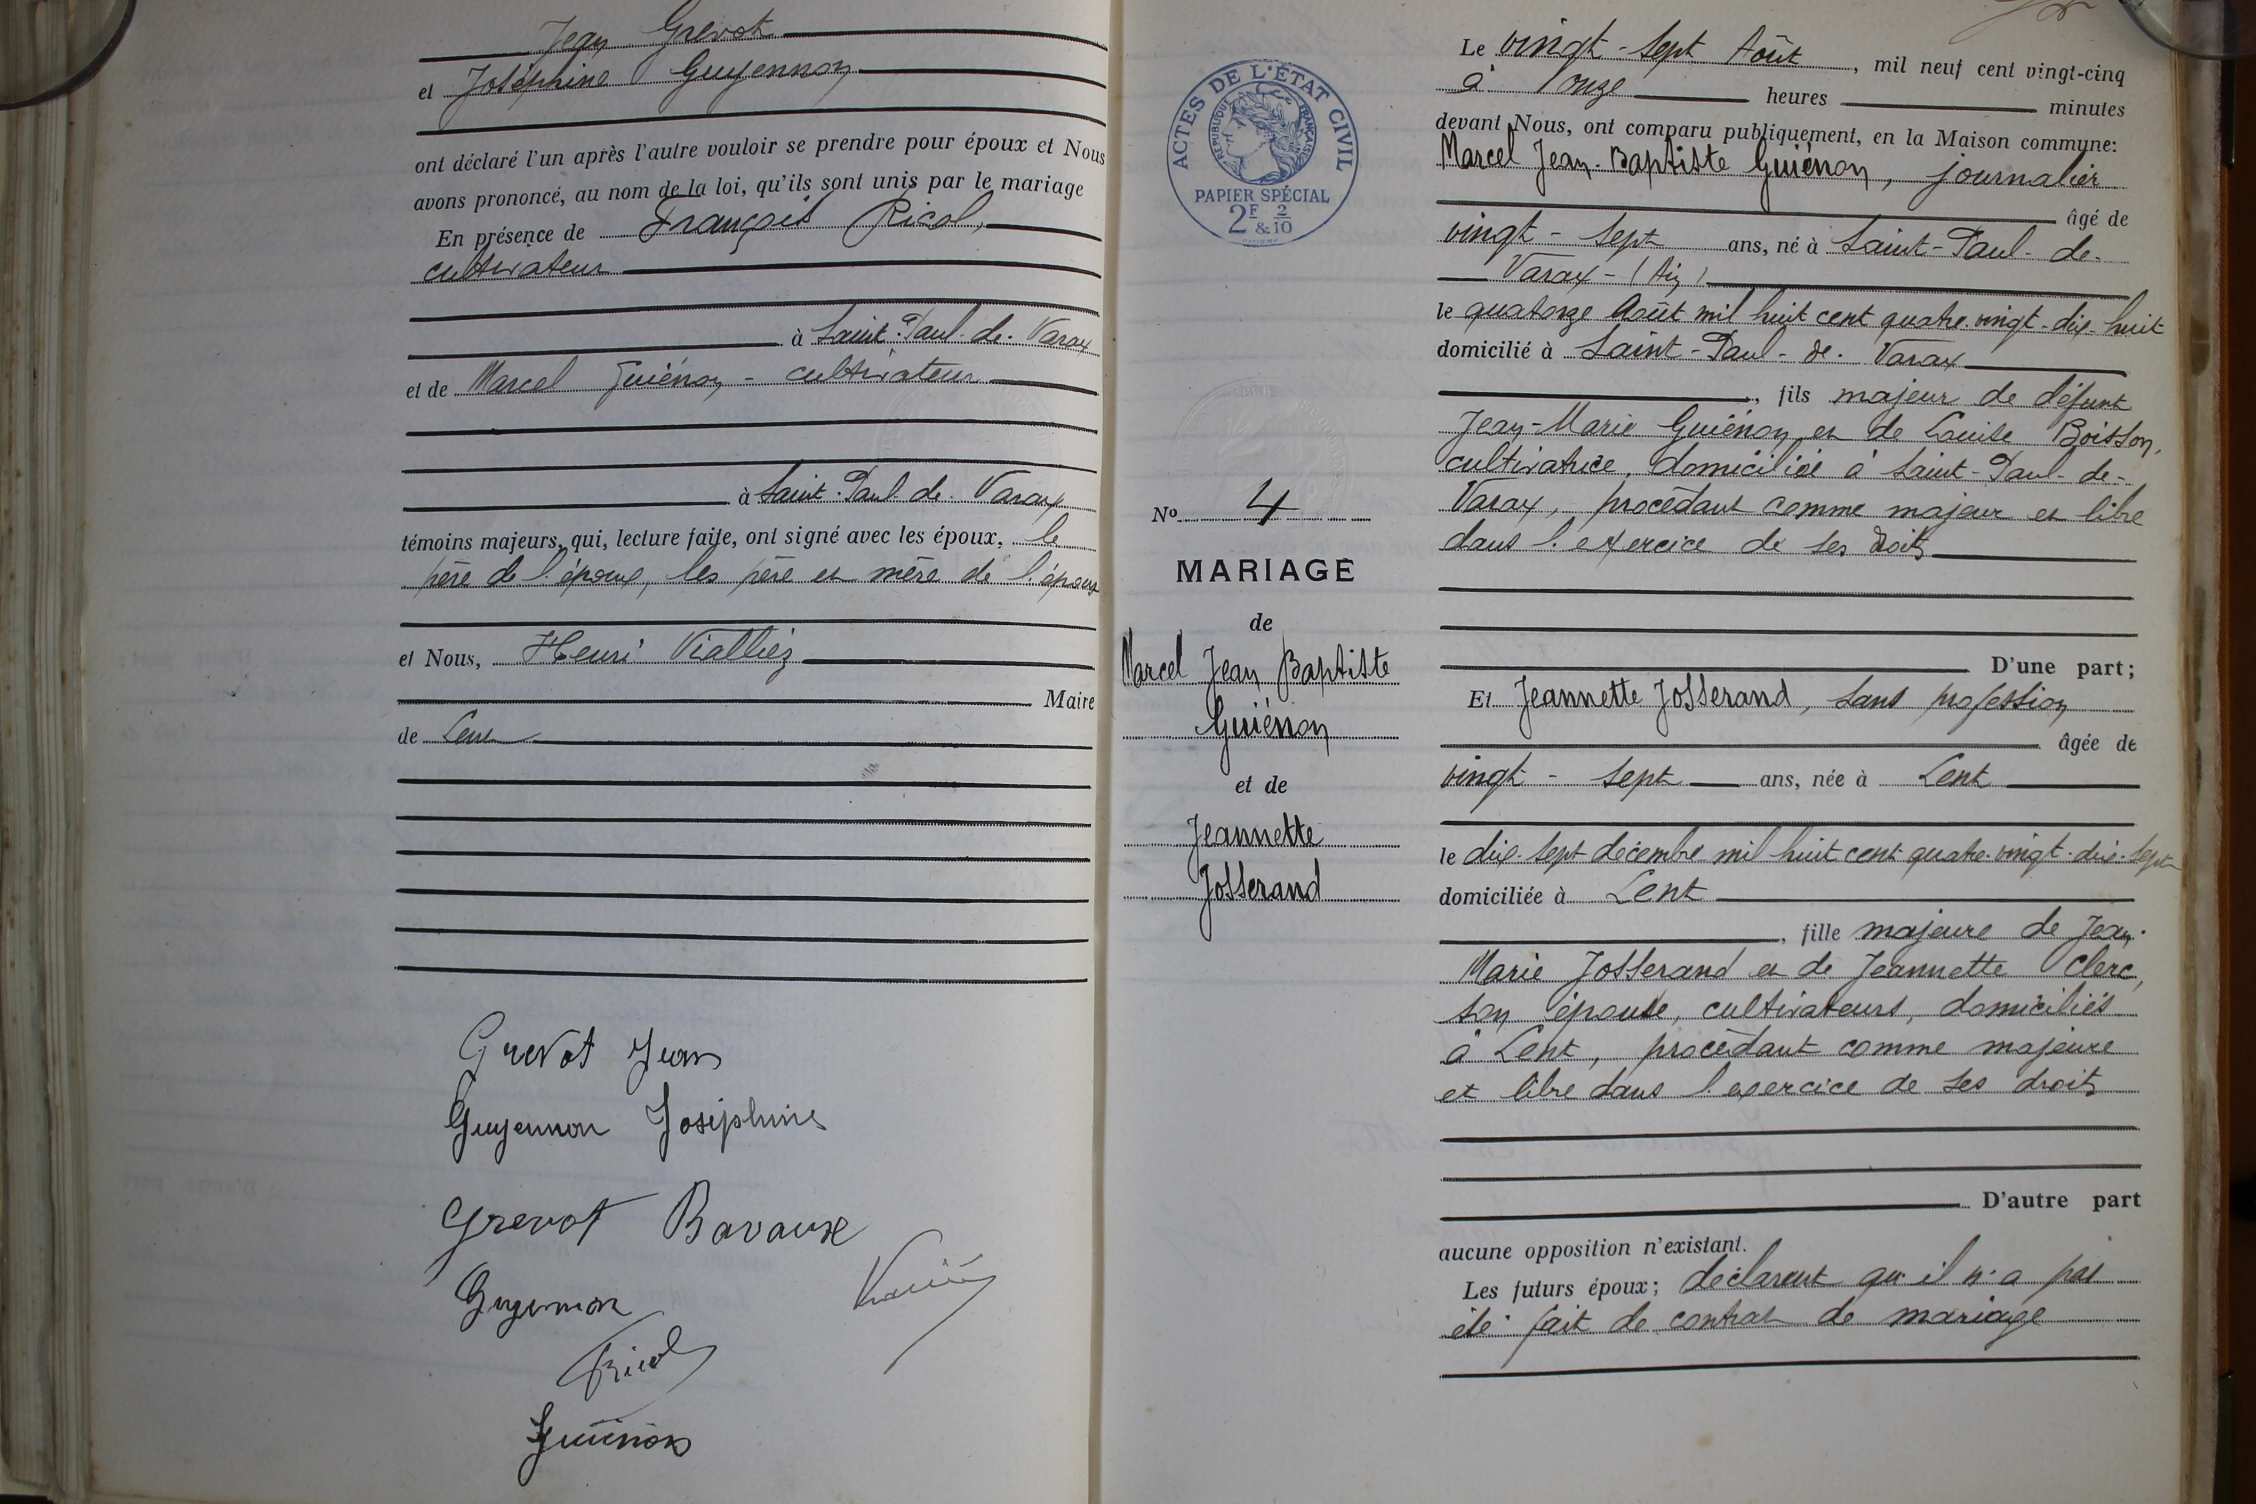 Jean Grevot
et Joséphine Guyennon
ont déclaré l'un après l'autre vouloir se prendre pour époux et Nous
avons prononcé, au nom de la loi, qu'ils sont unis par le mariage
En présence de François Ricol,
cultivateur
à Saint-Paul-de-Varax
et de Marcel Guiénon - cultivateur
à Saint-Paul-de-Varax
témoins majeurs, qui, lecture faite, ont signé avec les époux, le
père de l'époux, les père et mère de l'épouse
et Nous, Henri Vialliez
Maire
de Lent
Grevot Jean
Guyennon Joséphine
Grevot Bavoux
Guyennon
Ricol
Guiénon
ACTES DE L'ÉTAT CIVIL
RÉPUBLIQUE FRANÇAISE
PAPIER SPÉCIAL
2F & 2/10
No 4
MARIAGE
de
Marcel Jean Baptiste
Guiénon
et de
Jeannette
Josserand
Le vingt-sept Août, mil neuf cent vingt-cinq
à onze heures minutes
devant Nous, ont comparu publiquement, en la Maison commune:
Marcel Jean-Baptiste Guiénon, journalier
âgé de
vingt-sept ans, né à Saint-Paul-de-
Varax-(Ain)
le quatorze Août mil huit cent quatre-vingt-dix-huit
domicilié à Saint-Paul-de-Varax
, fils majeur de défunt
Jean-Marie Guiénon et de Louise Boisson,
cultivatrice, domiciliée à Saint-Paul-de-
Varax, procédant comme majeur et libre
dans l'exercice de ses droits
D'une part;
Et Jeannette Josserand, sans profession
âgée de
vingt-sept ans, née à Lent
le dix-sept décembre mil huit cent quatre-vingt-dix-sept
domiciliée à Lent
, fille majeure de Jean-
Marie Josserand et de Jeannette Clerc,
son épouse, cultivateurs, domiciliés
à Lent, procédant comme majeure
et libre dans l'exercice de ses droits
D'autre part
aucune opposition n'existant.
Les futurs époux; déclarent qu'il n'a pas
été fait de contrat de mariage